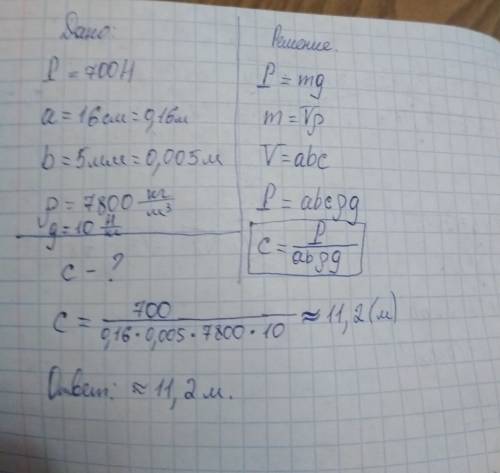 Дано:
P = 700Н
a = 16см = 0,16м
b = 5мм = 0,005м
ρ = 7800 кг/м³
g = 10 Н/кг
c - ?
Решение.
P = mg
m = Vρ
V = abc
P = abcρg
c = P/abρg
c = 700/0,16·0,005·7800·10 ≈ 11,2(м)
Ответ: ≈ 11,2 м.